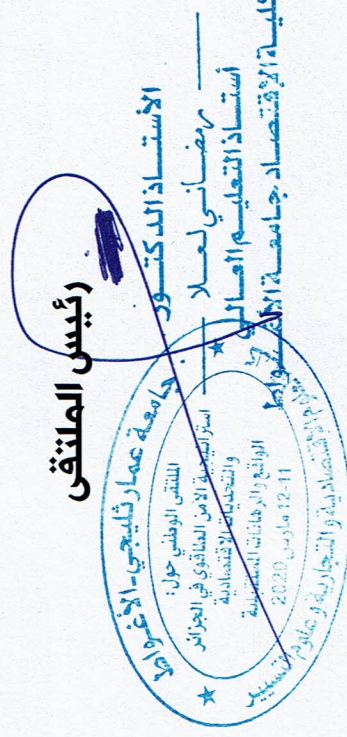 رئيس الملتقى
الأستاذ الدكتور
رمضاني لعلا
أستاذ التعليم العالي
كلية الاقتصاد جامعة الأغواط
جامعة عمار ثليجي-الأغواط
الملتقى الوطني حول:
استراتيجية الأمن الطاقوي في الجزائر
والتحديات الاقتصادية
الواقع والرهانات المستقبلية
11-12 مارس 2020
العلوم الاقتصادية والتجارية وعلوم التسيير